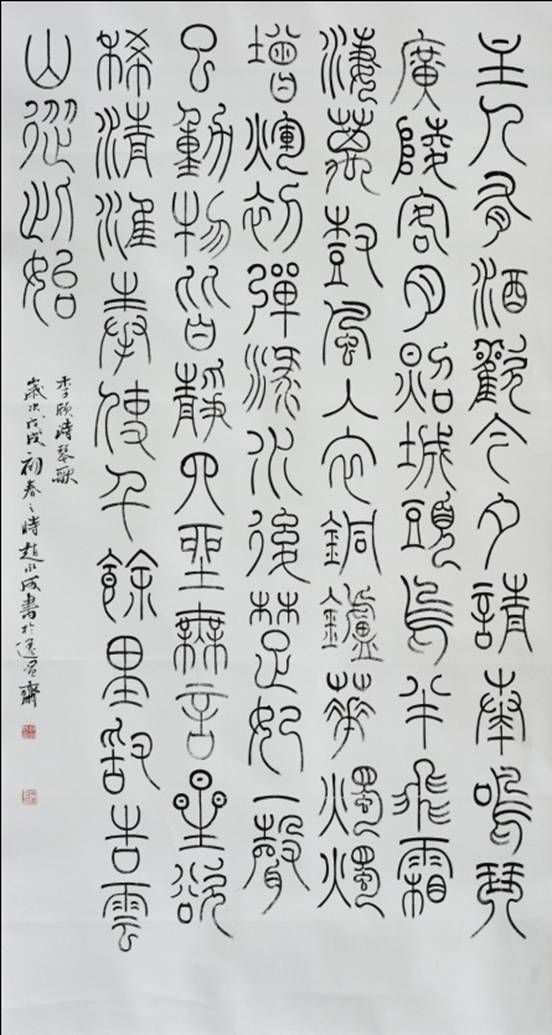 主人有酒歡今夕請奏鳴琴
廣陵客月照城頭烏半飛霜
淒萬樹風入衣銅鑪華燭燭
增輝初彈淥水後楚妃一聲
已動物皆靜四座無言星欲
稀清淮奉使千餘里敢告雲
山從此始
李頎詩琴歌
歲次戊戌初春之時趙成書於齋